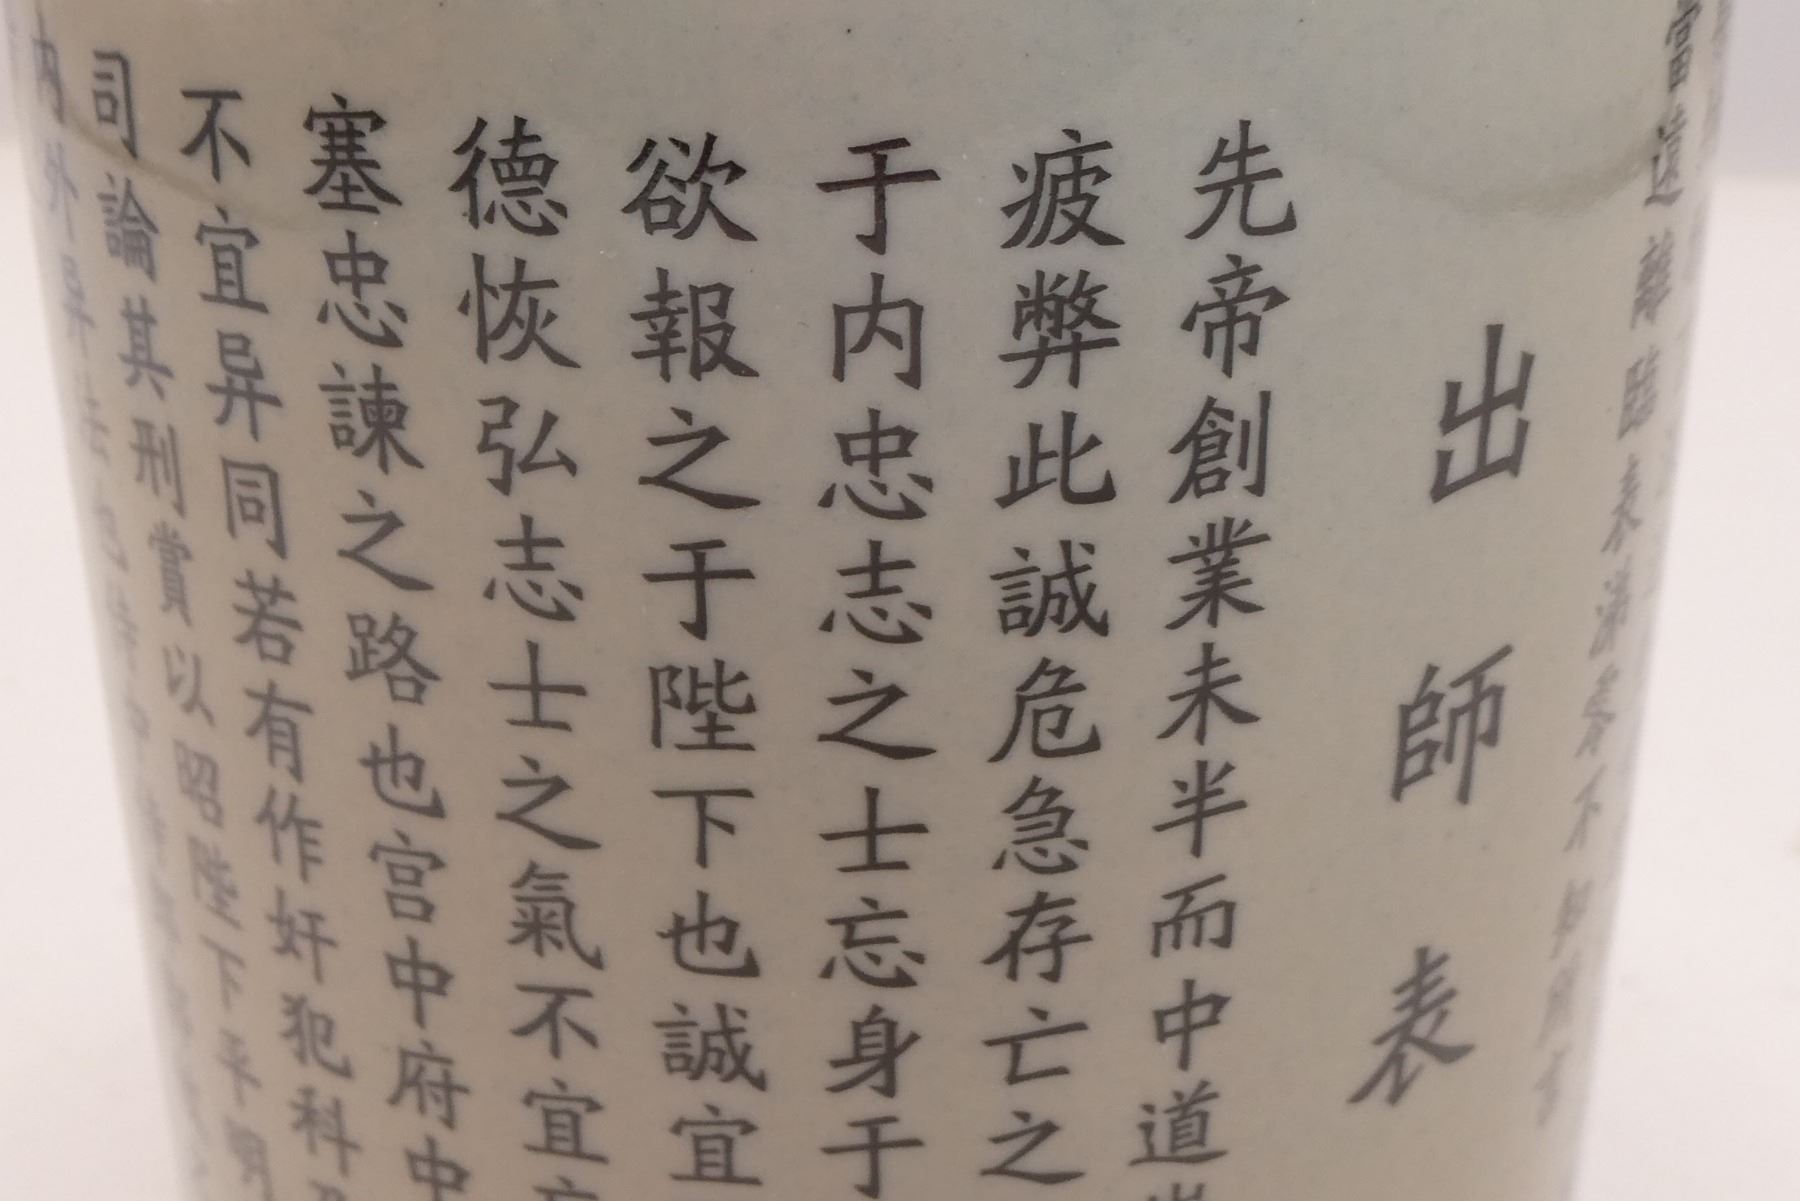 出師表
先帝創業未半而中道
疲弊此誠危急存亡之
于内忠志之士忘身于
欲報之于陛下也誠宜
德恢弘志士之氣不宜
塞忠諫之路也宫中府中
不宜异同若有作奸犯科
司論其刑賞以昭陛下平明
内外异法也侍中侍
當遠離臨表涕零不知所言